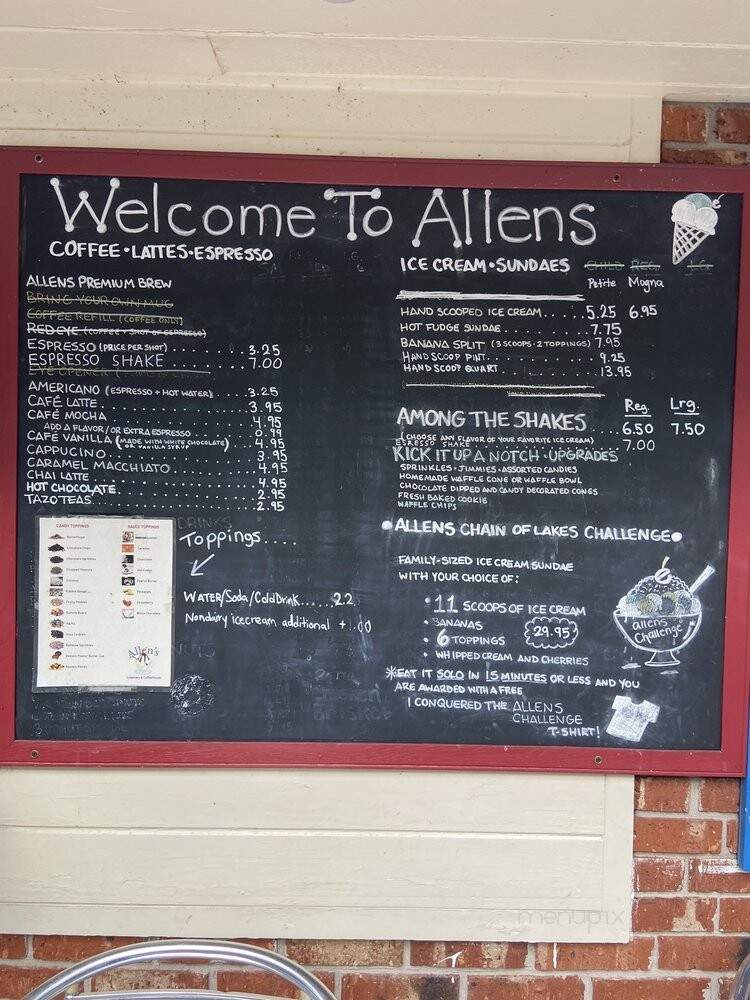 Welcome To Allens
COFFEE • LATTES • ESPRESSO
ALLENS PREMIUM BREW
BRING YOUR OWN MUG
COFFEE REFILL (COFFEE ONLY)
RED EYE (COFFEE + SHOT OF ESPRESSO)
ESPRESSO (PRICE PER SHOT) 3.25
ESPRESSO SHAKE 7.00
EYE OPENER
AMERICANO (ESPRESSO + HOT WATER) 3.25
CAFÉ LATTE 3.95
CAFÉ MOCHA 4.95
ADD A FLAVOR / OR EXTRA ESPRESSO 0.99
CAFÉ VANILLA (MADE WITH WHITE CHOCOLATE OR VANILLA SYRUP) 4.95
CAPPUCINO 3.95
CARAMEL MACCHIATO 4.95
CHAI LATTE 4.95
HOT CHOCOLATE 2.95
TAZO TEAS 2.95
DRINKS
CANDY TOPPINGS SAUCE TOPPINGS
Allen's
Toppings....
WATER/Soda/ColdDrink...... 2.2
Nondairy icecream additional +1.00
ICE CREAM • SUNDAES CHILD REG. LG.
Petite Magna
HAND SCOOPED ICE CREAM.... 5.25 6.95
HOT FUDGE SUNDAE 7.75
BANANA SPLIT (3 SCOOPS • 2 TOPPINGS) 7.95
HAND SCOOP PINT 9.25
HAND SCOOP QUART 13.95
Reg. Lrg.
AMONG THE SHAKES 6.50 7.50
(CHOOSE ANY FLAVOR OF YOUR FAVORITE ICE CREAM)
ESPRESSO SHAKE 7.00
KICK IT UP A NOTCH • UPGRADES
SPRINKLES • JIMMIES • ASSORTED CANDIES
HOMEMADE WAFFLE CONE OR WAFFLE BOWL
CHOCOLATE DIPPED AND CANDY DECORATED CONES
FRESH BAKED COOKIE
WAFFLE CHIPS
• ALLENS CHAIN OF LAKES CHALLENGE •
FAMILY-SIZED ICE CREAM SUNDAE
WITH YOUR CHOICE OF:
• 11 SCOOPS OF ICE CREAM
• BANANAS
• 6 TOPPINGS
29.95
• WHIPPED CREAM AND CHERRIES
allens
Challenge
*EAT IT SOLO IN 15 MINUTES OR LESS AND YOU
ARE AWARDED WITH A FREE
I CONQUERED THE ALLENS
CHALLENGE
T-SHIRT!
menupix